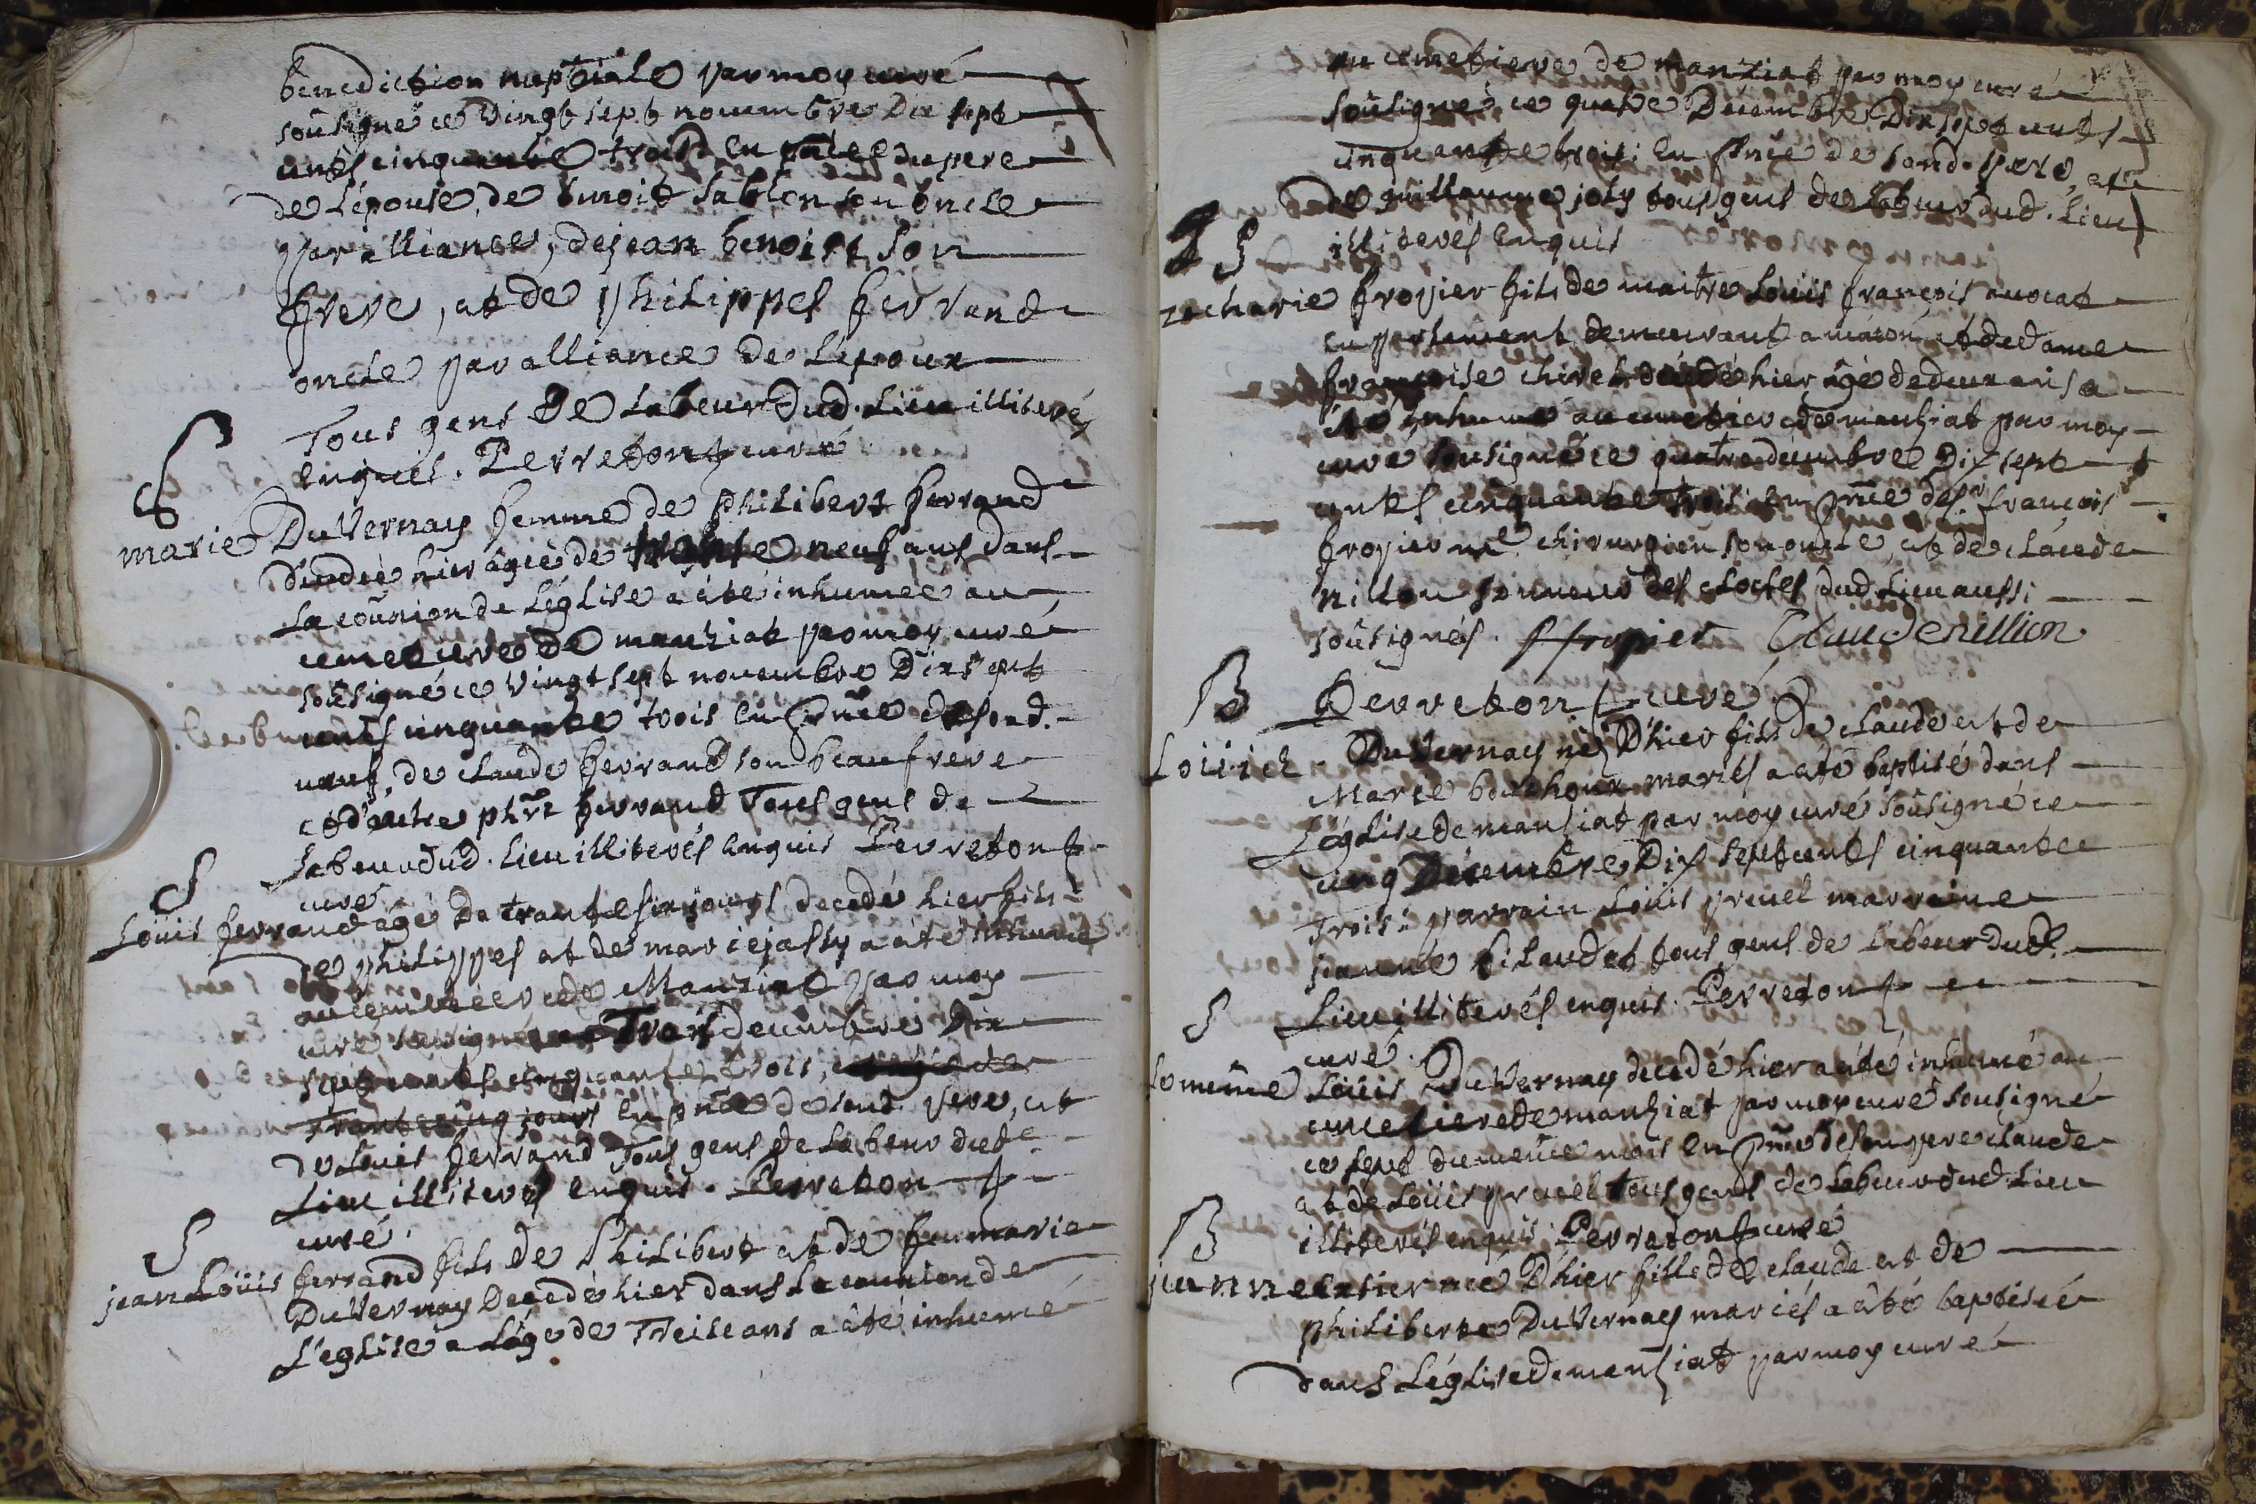 benediction nuptiale par moy curé
soûsigné ce vingt sept novembre dix sept
cents cinquante trois en du pere
de l'épouse, de benoit sablon son oncle
par alliance, de jean benoist son
frere, et de philippes ferrand
oncle par alliance de l'époux
Tous gens de labeur dud. lieu illiterés
enquis. Perreton curé
S
marie Du Vernay femme de philibert ferrand
décédée hier âgée de trente neuf ans dans
la coûnion de l'église a été inhumée au
cemetiere de manziat par moy curé
soûsigné ce vingt sept novembre dix sept
cents cinquante trois en pnce de sond.
de claude ferrand son beaufrere
et d'autre phert ferrand Tous gens de
labeur dud. lieu illiterés enquis Perreton
curé
S
Loüis ferrand âgé de trente six jours decedé hier fils
de philippes et de marie jassy a été inhumé
au cemetiere de Manziat par moy
curé sousigné ce Trois decembre dix
sept cents cinquante trois,
trante cinq jours en pnce de sond. pere, et
de Loüis ferrand Tous gens de labeur dud.
Lieu illiterés enquis. Perreton
curé.
S
jean Loüis ferrand fils de Philibert et de feu marie
DuVernay Decedé hier dans la counion de
L'eglise a l'âge de Treise ans a été inhumé
au cemetiere de manziat par moy curé
soûsigné ce quatre Décembre Dix sept cents
cinquante trois en pnce de sond. pere, et
de guillaume joly tous gens de labeur dud. lieu
illiterés enquis
S
zacharie froyier fils de maitre Loüis françois avocat
en parlement demeurant a mâcon et de dame
françoise chiret décédé hier âgé de deux ans a
été inhumé au cemetiere de manziat par moy
curé sousigné ce quatre décembre Dix sept
cents cinquante trois en pnce de sr françois
froyier me chirurgien son oncle, et de claude
nillon sonneur des cloches dud. lieu aussi
soûsignés. f froyier Claude nillion
Perreton curé
B
Loüis DuVernay né d'hier fils de claude et de
Marie bourhoux mariés a été baptisé dans
L'église de manziat par moy curé soûsigné ce
cinq Décembre Dix sept cents cinquante
Trois: parrain Loüis pruel marraine
jeanne bilaudet tous gens de labeur dud.
Lieu illiterés enquis. Perreton
curé.
S
Lo meme Loüis DuVernay decedé hier a été inhumé au
cemetiere de manziat par moy curé sousigné
ce sept du même mois en pnce de son pere claude
et de Loüis pruel tous gens de labeur dud. lieu
illiterés enquis Perreton curé
B
jeanne née D'hier fille de claude et de
philiberte DuVernay mariés a été baptisée
dans l'église de manziat par moy curé